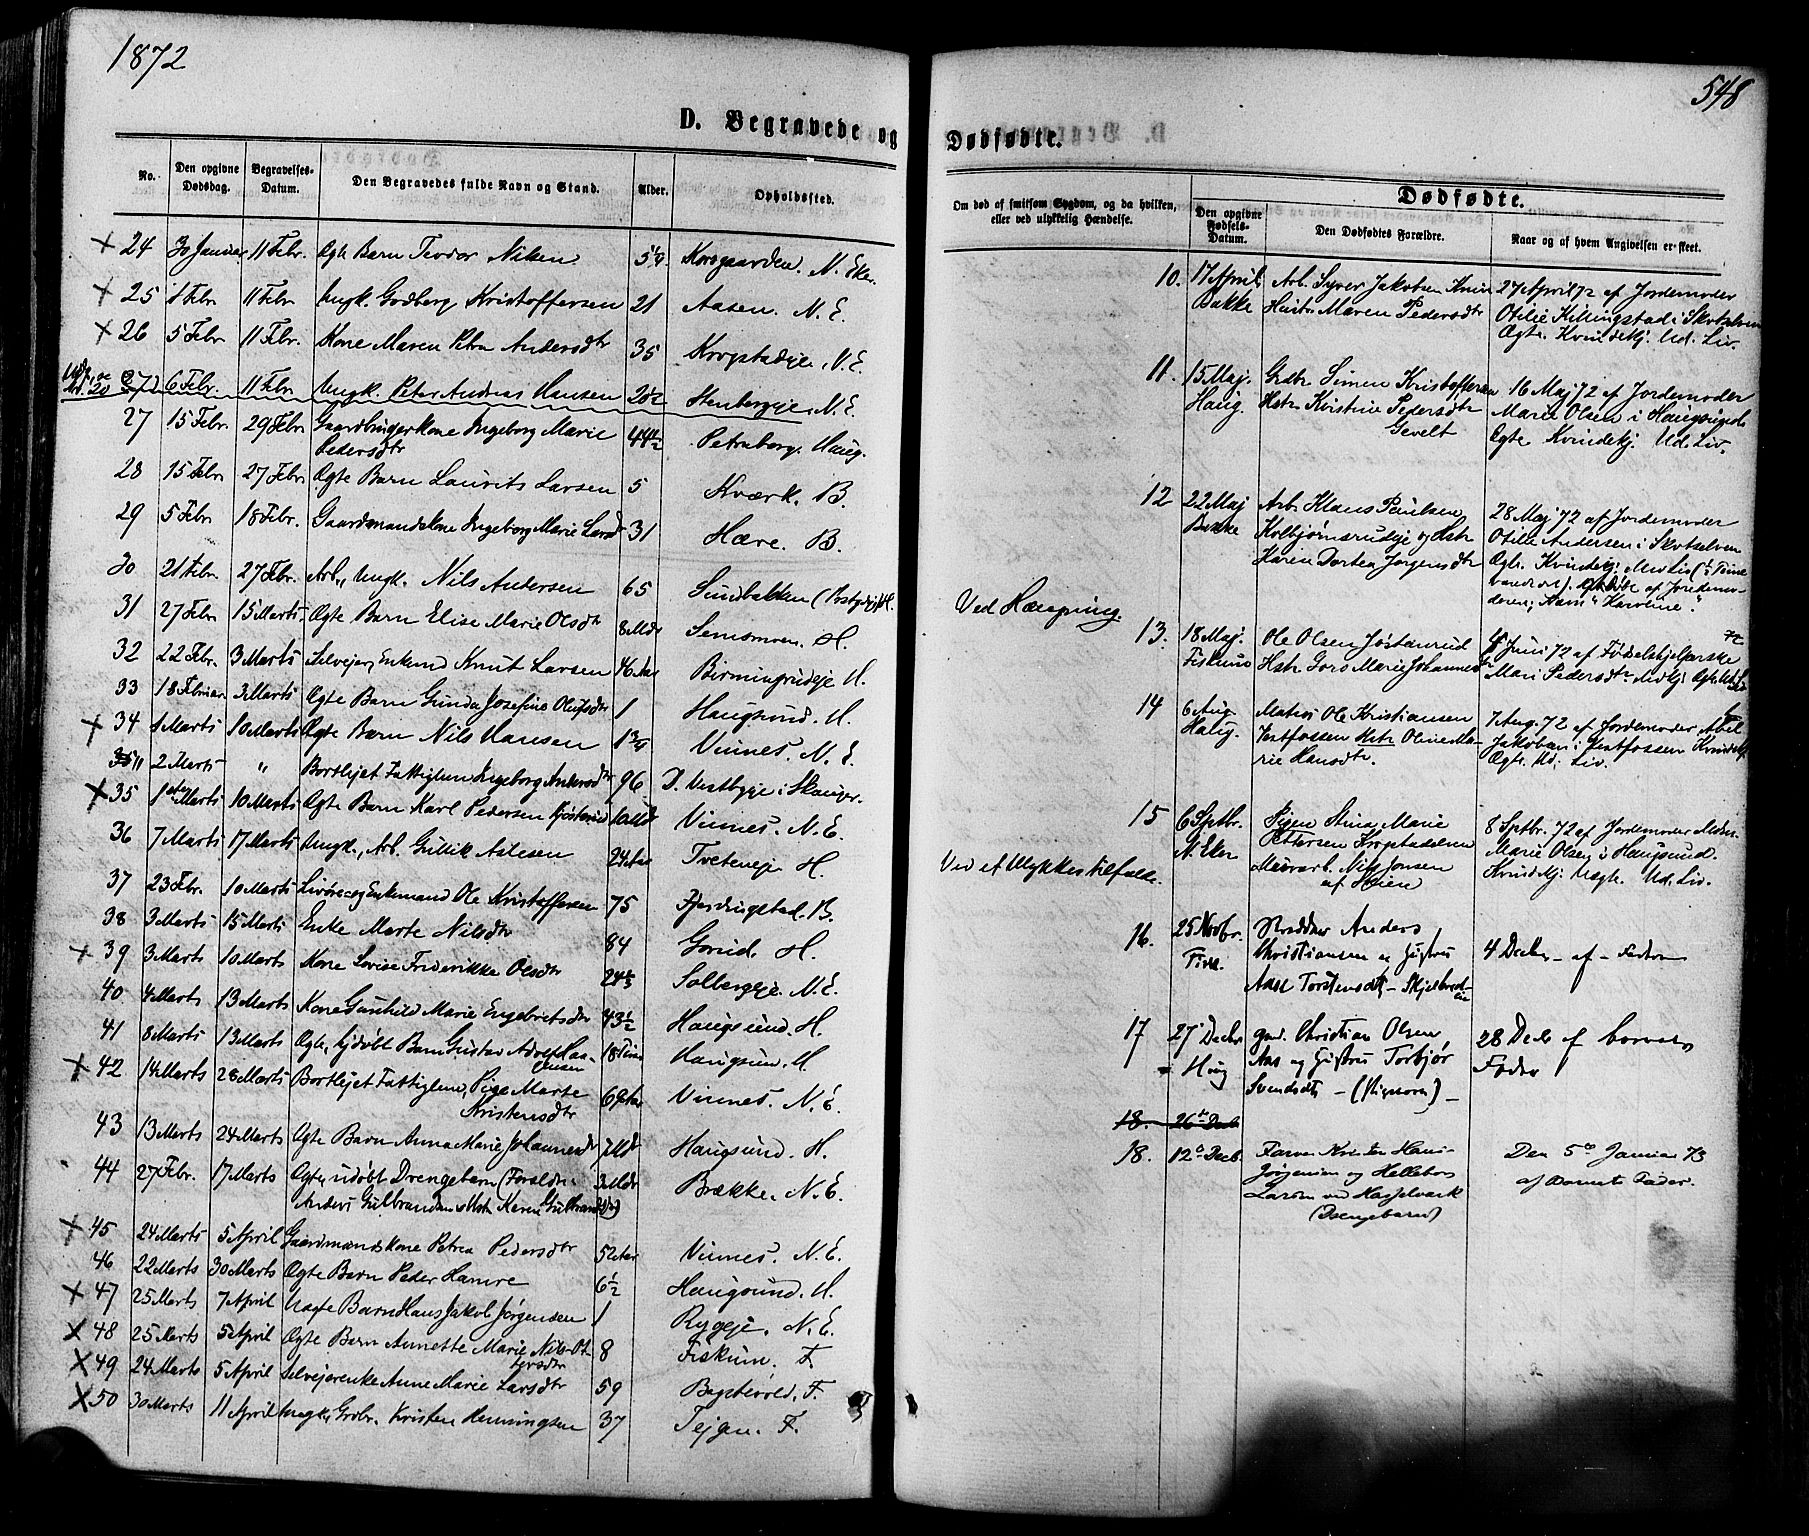 1872
548
D. Begravede og
Dødfødte.
No. Den opgivne Dødsdag. Begravelses-Datum. Den Begravedes fulde Navn og Stand. Alder. Opholdssted.
Om død af smitsom Sygdom, og da hvilken, eller ved ulykkelig Hændelse.
Dødfødte.
Den opgivne Fødsels-Datum. Den Dødfødtes Forældre. Naar og af hvem Angivelsen er skeet.
24 30 Januar 11 Febr. Ægte Barn Teodor Nilsen 5 1/4 Korsgaarden. N. Eker.
25 1 Febr 11 Febr Ungk. Godberg Kristoffersen 21 Aasen. N. E.
26 5 Febr 11 Febr. Kone Maren Petra Andersdtr 35 Krogstadeje. N. E.
6 Febr. 11 Febr Ungk. Peter Andreas Hansen Stenbergeje. N. E.
27 15 Febr 29 Febr Gaardbrugerkone Ingeborg Marie 44 1/2 Petersborg. Haug.
Pedersdtr
28 15 Febr 27 Febr. Ægte Barn Laurits Larsen 5 Kværk. B.
29 5 Febr 18 Febr. Gaardmandskone Ingeborg Marie Larsdtr 31 Hære. B.
30 21 Febr 27 Febr. Arb., Ungk. Nils Andersen 65 Sundbakken
31 27 Febr 15 Marts. Ægte Barn Elise Marie Olsdtr 8 Mdr Semsmoen. H.
32 22 Febr. 3 Marts Selvejer, Enkemd Knut Larsen 46 Aar Birmingrudeje H.
33 18 Februar 3 Marts Ægte Barn Gunda Josefine Olafsdtr 1 Haugsund. H.
34 1 Marts 10 Marts Ægte Barn Nils Hansen 1 3/4 Vinnes. N. E.
2 Marts " Bortlejet Fattiglem Ingeborg Andersdtr 96 D. Vestbyeje i Skouger.
35 1 Marts 10 Marts Ægte Barn Karl Pedersen 10 Mdr Vinnes. N. E.
36 7 Marts 17 Marts Ungk., Arb. Gullik Aslesen 24 Aar Tveteneje H.
37 23 Febr. 10 Marts Livøre og Enkemand Ole Kristoffersen 75 Fjerdingstad. B.
38 3 Marts 15 Marts Enke Marte Nilsdtr 84 Gorud. H.
39 3 Marts 10 Marts Kone Lovise Frederikke Olsdtr Solbergeje. N. E.
40 4 Marts 13 Marts Kone Gunhild Marie Engebretsdtr 43 1/2 Haugsund. H.
41 8 Marts 13 Marts Ægte, hjdøbt Barn Gustav Adolf Haa- 18 Timer Haugsund. H.
42 14 Marts 28 Marts Bortlejet Fattiglem, Pige Marte 69 Aar Vinnes. N. E.
Kristensdtr
43 13 Marts 24 Marts Ægte Barn Anna Marie Johannesdtr 7 Mdr Haugsund. H.
44 27 Febr. 17 Marts Ægte, udøbt Drengebarn (Foreldre: 3 Mdr Brække. N. E.
Anders Gulbrandsen, Hstr. Karen Gulbrandsdtr)
45 24 Marts 5 April Gaardmandskone Petrea Pedersdtr 52 Aar Vinnes. N. E.
46 22 Marts 30 Marts Ægte Barn Peder Hamre 6 1/2 Haugsund. H.
47 25 Marts 7 April Uægte Barn Hans Jakob Jørgensen 1 Rygeje. N. E.
48 25 Marts 5 April Ægte Barn Annette Marie Nils Ot- 8 Fiskum. F.
tersdtr
49 24 Marts 5 April Selvejerenke Anne Marie Larsdtr 59 F.
50 30 Marts 11 April Ungk. Grbr. Kristen Henningsen 37 Tejgen. F.
Ved Hængning.
Ved et Ulykkestilfælde.
10. 17 April Arb. Syver Jakobsen 27 April 72 af Jordemoder
Bakke Hustr. Maren Pedersdtr Otilie Killingstad i Skotselven
Ægte. Kvindekj. Ud. Liv.
11. 15 Maj. Grdbr. Simen Kristoffersen 16 Maj 72 af Jordemoder
Haug. Hstr. Kristine Pedersdtr Marie Olsen i Haugsund.
Gevelt Ægte Kvindekj. Ud. Liv.
12 22 Maj Arb. Klaus Paulsen 28 Maj 72 af Jordemoder
Bakke Kolbjørnsrudeje og Hstr Otilie Andersen i Skotselven
Karen Dortea Jørgensdtr Ægte. Kvindekj. Med Liv (1/2 Time
deren, Navn "Karoline".
13. 18 Maj. Ole Olsen Jøstanrud 4 Juni 72 af Fødselshjelperske
Fiskum Hstr. Goro Marie Johannesdtr Mari Pedersdtr
14 6 Aug. Matros Ole Kristiansen 7 Aug. 72 af Jordemoder Abel
Haug. Vestfossen Hstr. Oline Ma- Jakobsen i Vestfossen Kvindekj
rie Hansdtr. Ægte. Ud. Liv.
15 6 Septbr. Pigen Stina Marie 8 Septbr. 72 af Jordemoder
N. Eker Pettersen Krogstadeie Marie Olsen i Haugsund.
Murarb. Nils Jonsen Kvindekj. Uægte. Ud. Liv.
af Heien
16. 25 Novbr. Skrædder Anders 4 Decbr – af – Faderen
Christiansen og Hustru
Aase Torstensdtr – Skjelbred-
eie
17 27 Decbr Christian Olsen 28 Decb af barnets
Haug Aas og Hustru Torbjør Fader
Svendsdtr –
18. 26 Decb
18. 12 Decb. Farver Kristen Hans Den 5te Januar 73
Jørgensen og Helleborg af Barnets Fader.
Larsen ved Hasselverk
(Drengebarn)